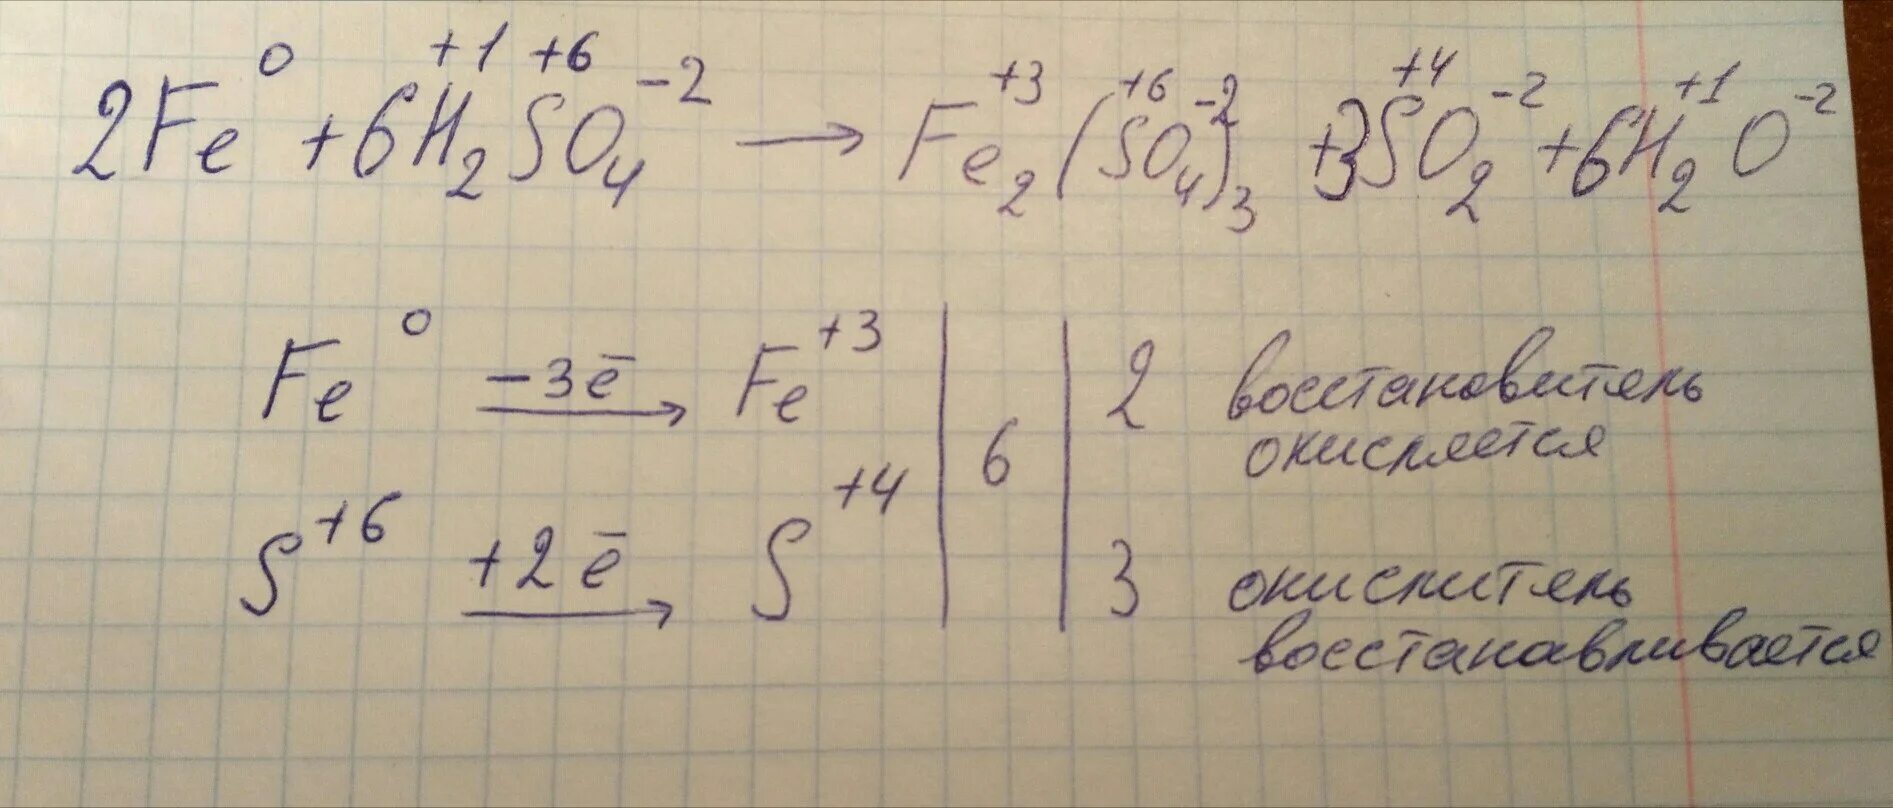 2Fe⁰ + 6H₂⁺¹S⁺⁶O₄⁻² → Fe₂⁺³(S⁺⁶O₄⁻²)₃ + 3S⁺⁴O₂⁻² + 6H₂⁺¹O⁻²
Fe⁰ −3ē → Fe⁺³ | 6 | 2 восстановитель
окисляется
S⁺⁶ +2ē → S⁺⁴ | | 3 окислитель
восстанавливается